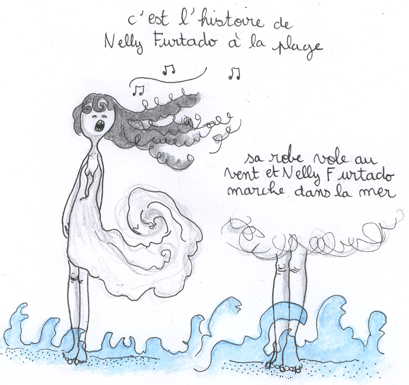 c'est l'histoire de
Nelly Furtado à la plage
sa robe vole au
vent et Nelly Furtado
marche dans la mer